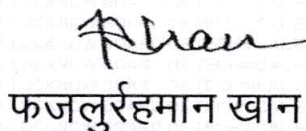 Rhan
फजलुर्रहमान खान